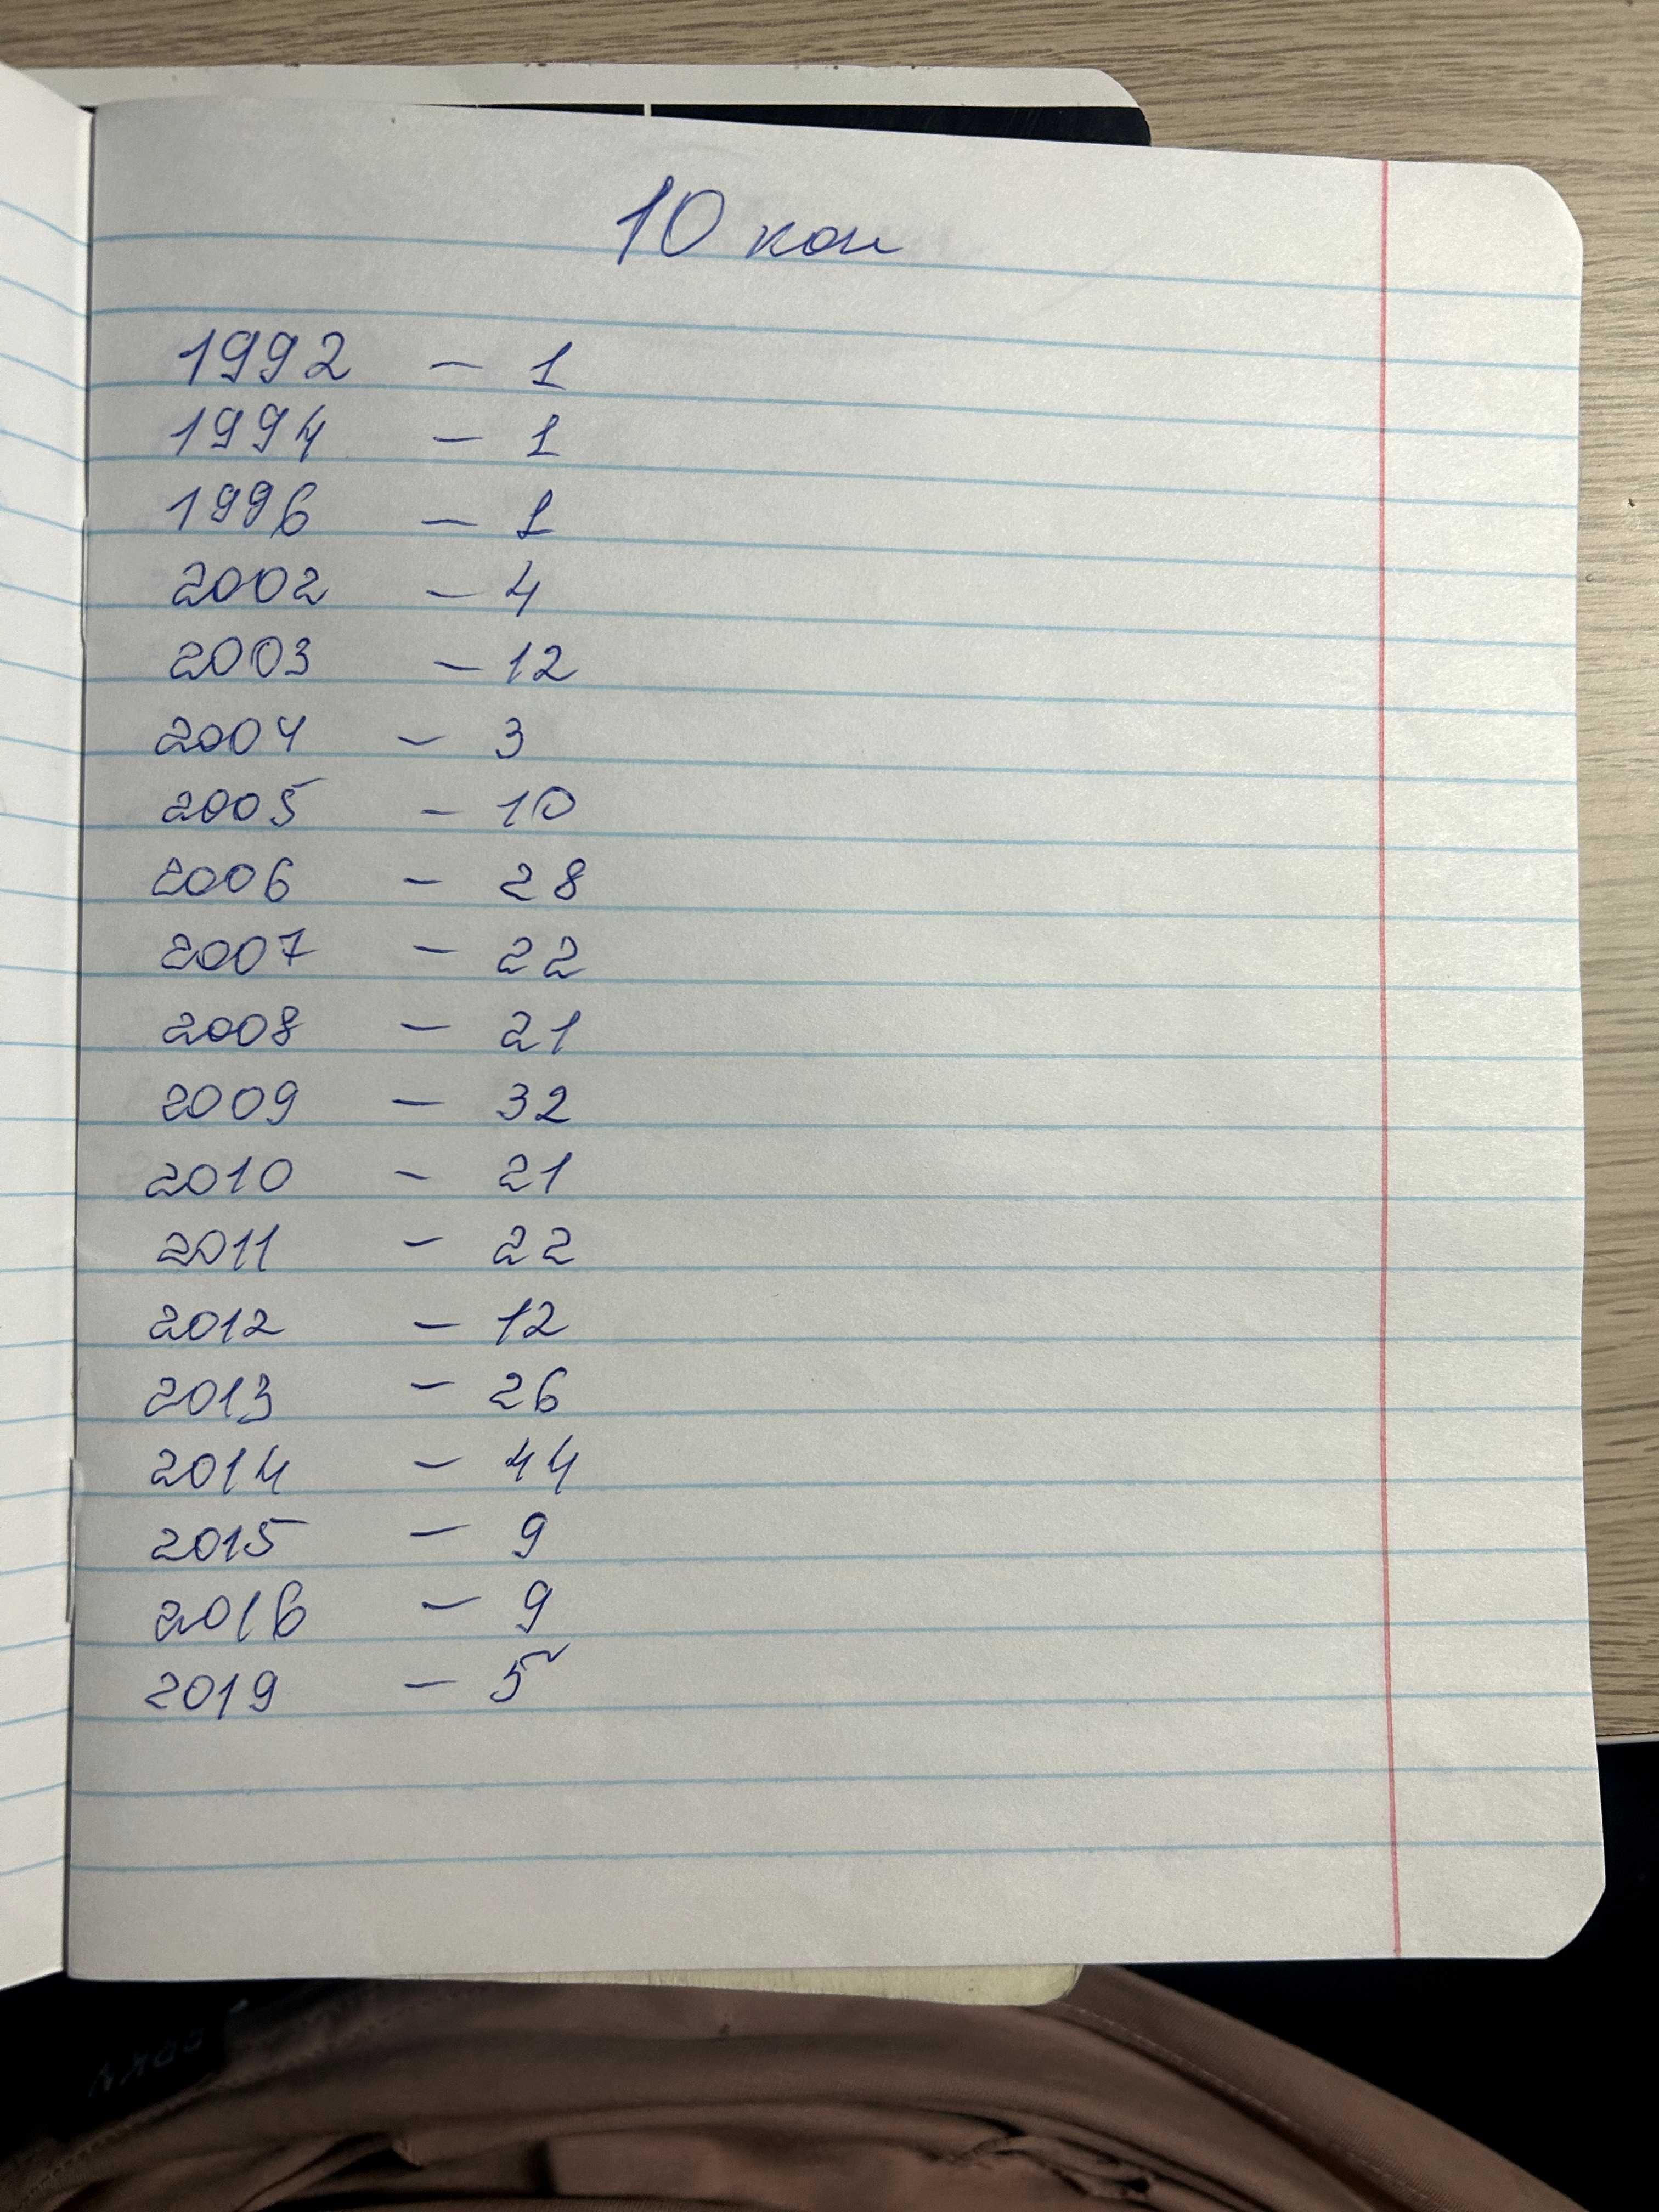 10 коп
1992 - 1
1994 - 1
1996 - 1
2002 - 4
2003 - 12
2004 - 3
2005 - 10
2006 - 28
2007 - 22
2008 - 21
2009 - 32
2010 - 21
2011 - 22
2012 - 12
2013 - 26
2014 - 44
2015 - 9
2016 - 9
2019 - 5